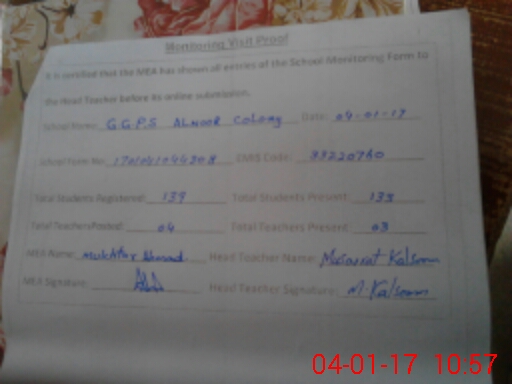 Monitoring Visit Proof
It is certified that the MEA has shown all entries of the School Monitoring Form to
the Head Teacher before its online submission.
School Name: G.G.P.S ALNOOR COLONY Date: 04-01-17
School Form No: EMIS Code:
Total Students Registered: 139 Total Students Present: 133
Total Teachers Posted: 04 Total Teachers Present: 03
MEA Name: Mukhtar Ahmad Head Teacher Name: Kalsoom
MEA Signature: Head Teacher Signature: M. Kalsoom
04-01-17 10:57